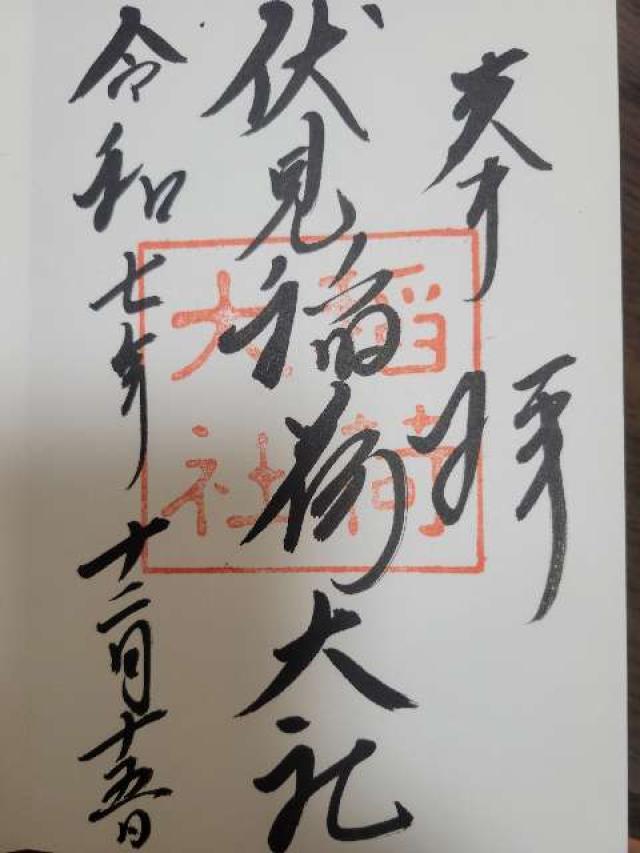 奉拝
伏見稲荷大社
稲荷
大社
令和七年十二月十五日